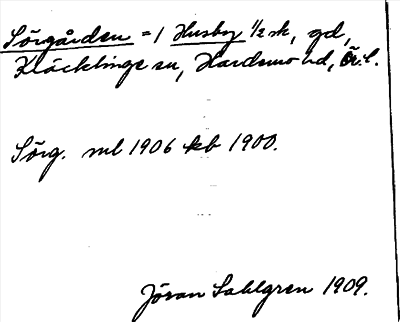 Sörgården = 1 Husby 1/2 sk, gd,
Kräcklinge sn, Hardemo hd, Ör. l.
Sörg. ml 1906 kb 1900.
Jöran Sahlgren 1909.